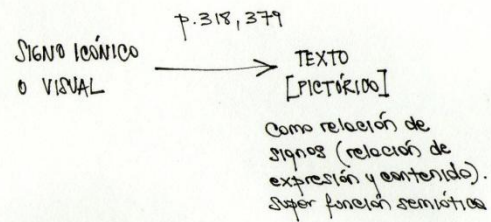 p.318, 379
SIGNO ICÓNICO
O VISUAL
TEXTO
[PICTÓRICO]
Como relación de
signos (relación de
expresión y contenido).
Super función semiótica